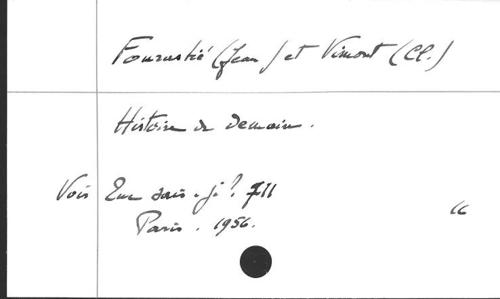 Fourastié (Jean) et Vimont (Cl.)
Histoire de Demain.
Vois Que sais-je? 711
Paris. 1956.